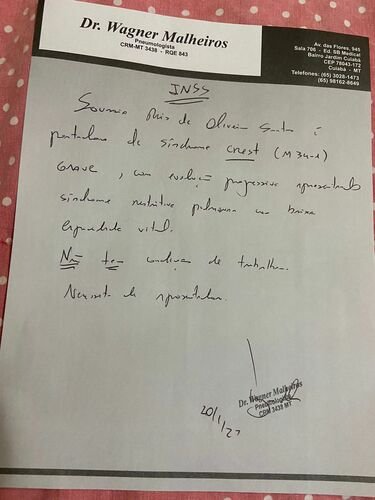 Dr. Wagner Malheiros
Pneumologista
CRM-MT 3438 - RQE 843
Av. das Flores, 945
Sala 706 - Ed. SB Medical
Bairro Jardim Cuiabá
CEP 78043-172
Cuiabá - MT
Telefones: (65) 3028-1473
(65) 98162-8649
INSS
Reis de Oliveira Santos é
portadora de síndrome CREST (M 34-1)
GRAVE, com evolução progressiva apresentando
síndrome restritiva pulmonar com baixa
capacidade vital.
Não tem condições de trabalho.
Necessita de aposentadoria.
Dr. Wagner Malheiros
Pneumologista
CRM 3438 MT
20/1/2